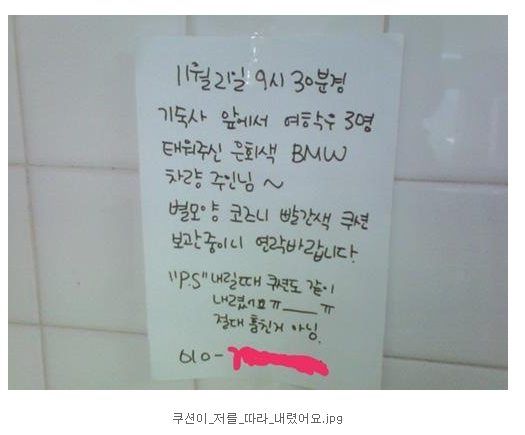 11월 21일 9시 30분경
기숙사 앞에서 여학우 3명
태워주신 은회색 BMW
차량 주인님 ~
별모양 코즈니 빨간색 쿠션
보관중이니 연락바랍니다.
"P.S" 내릴때 쿠션도 같이
내렸어요 ㅠ___ㅠ
절대 훔친거 아님.
010-
쿠션이_저를_따라_내렸어요.jpg